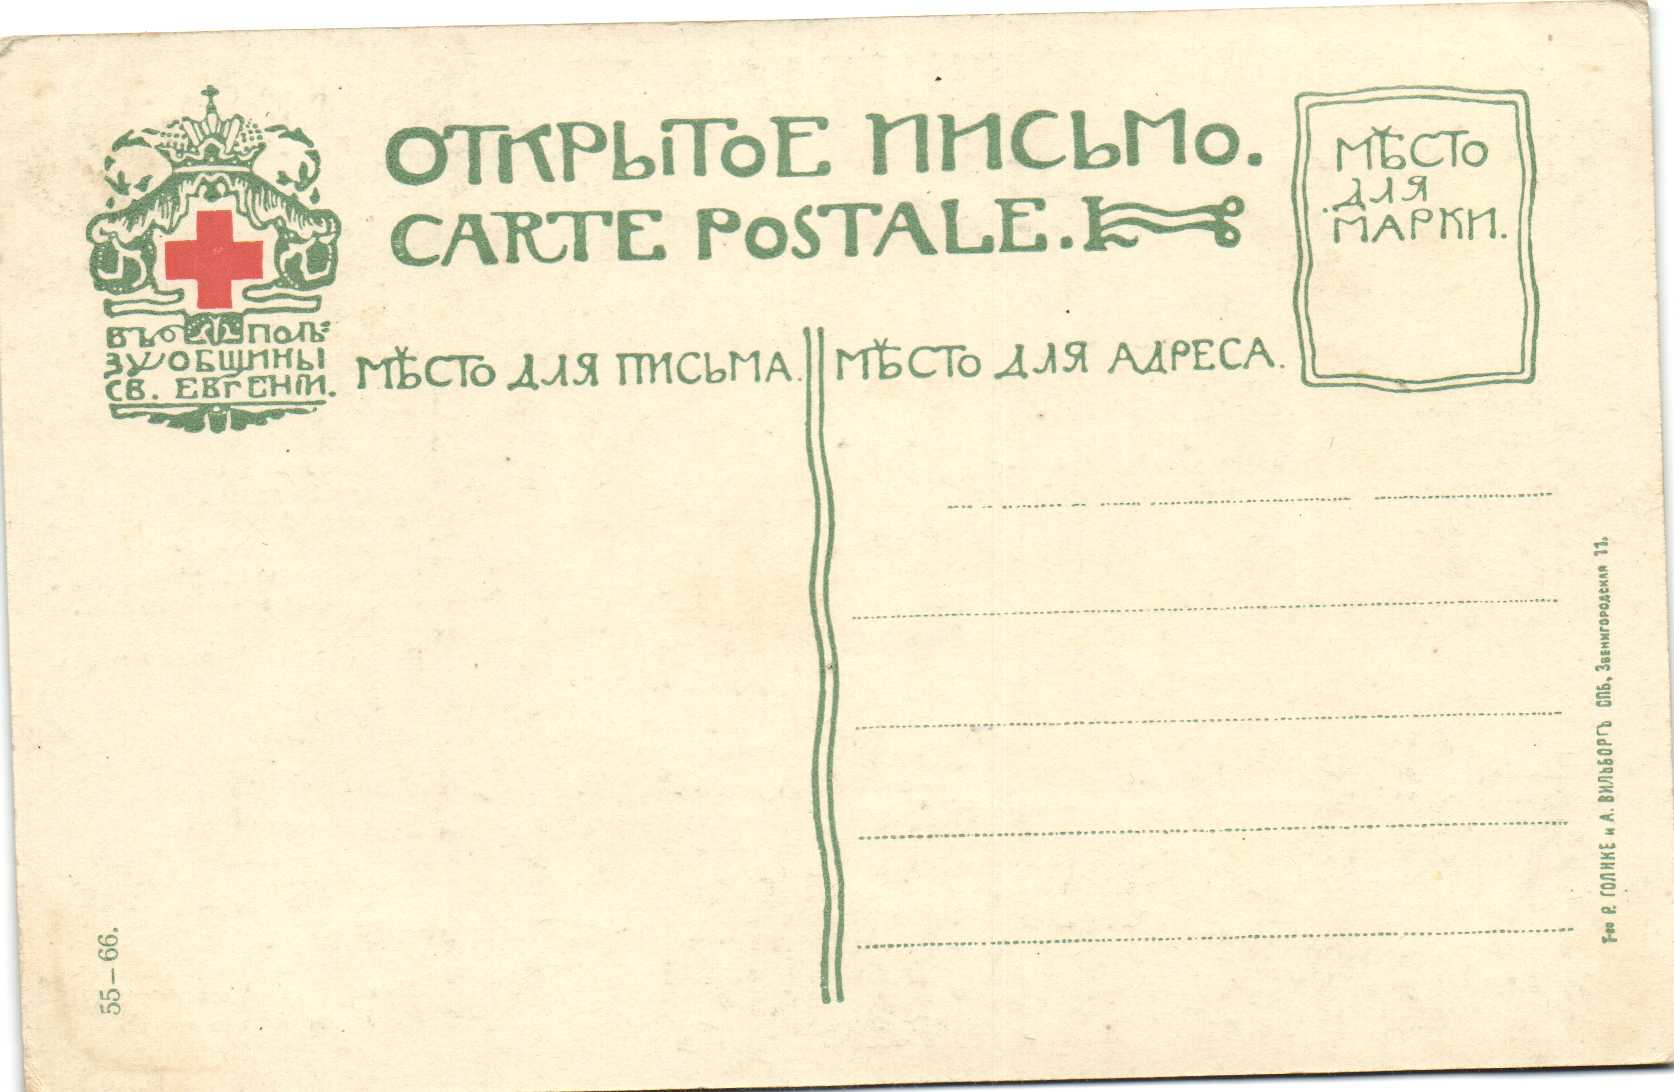 ОТКРЫТОЕ ПИСЬМО.
CARTE POSTALE.
МѢСТО
ДЛЯ
МАРКИ.
ВЪ ПОЛЬ=
ЗУ ОБЩИНЫ
СВ. ЕВГЕНІИ.
МѢСТО ДЛЯ ПИСЬМА.
МѢСТО ДЛЯ АДРЕСА.
55—66.
Т-во Р. ГОЛИКЕ и А. ВИЛЬБОРГЪ СПБ, Звенигородская 11.